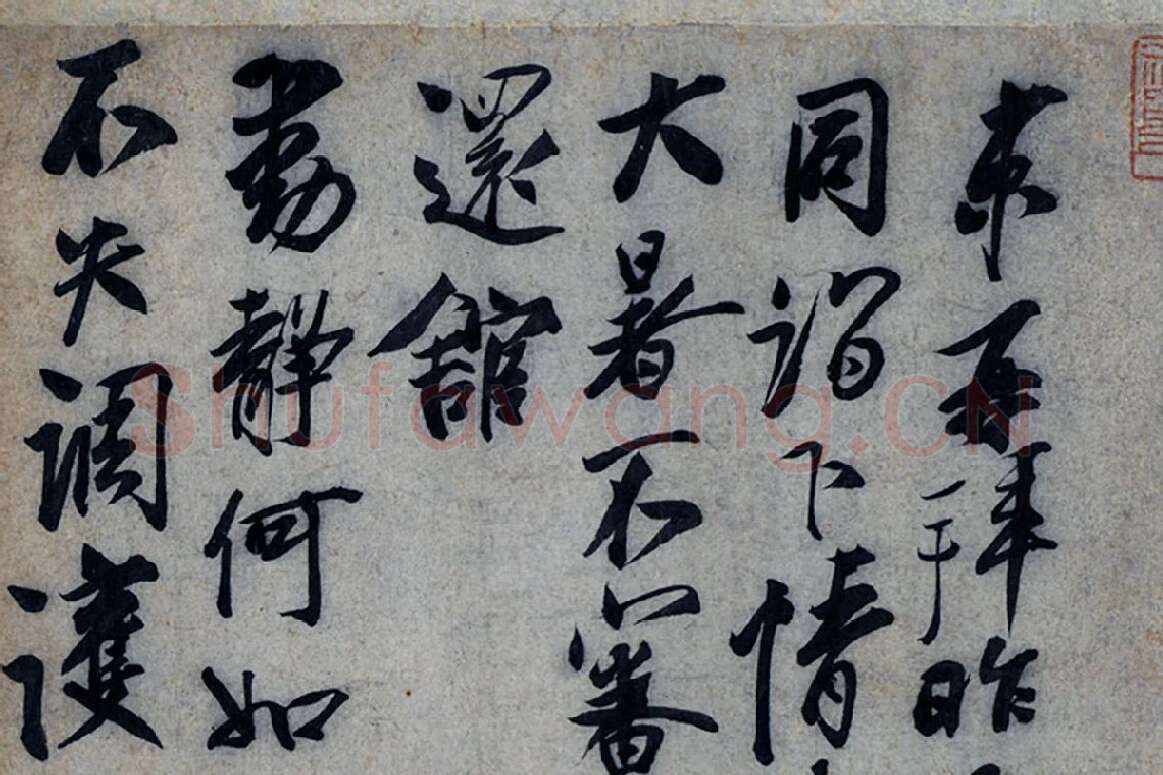 芾再拜昨
同謁下情
大暑不審
還館
動靜何如
不失調護
Shufawang.CN